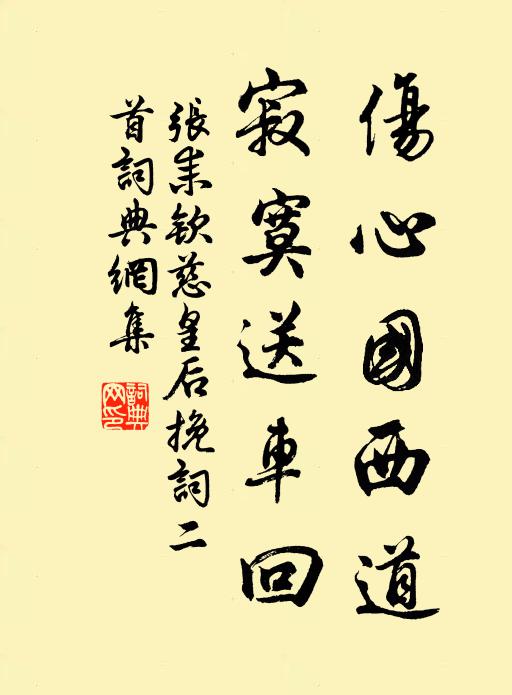 傷心國西道
寂寞送車回
張耒欽慈皇后挽詞二
首詞典網集
詞典
网印